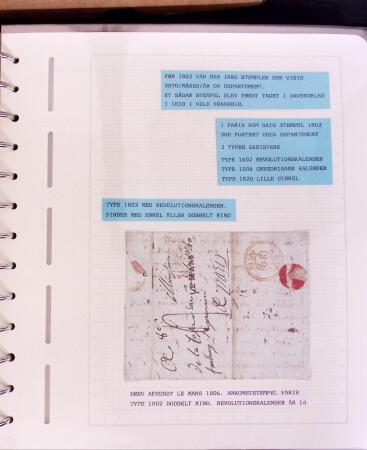 FØR 1802 VAR DER IKKE STEMPLER DER VISTE
DATO/MÅNED/ÅR OG DEPARTEMENT.
ET SÅDAN STEMPEL BLEV FØRST TAGET I ANVENDELSE
I 1830 I HELE FRANKRIG.
I PARIS KOM DATO STEMPEL 1802
DOG FORTSAT UDEN DEPARTEMENT
3 TYPER EKSISTERE
TYPE 1802 REVOLUTIONSKALENDER
TYPE 1806 GREGORIANSK KALENDER
TYPE 1820 LILLE CIRKEL
TYPE 1802 MED REVOLUTIONSKALENDER.
FINDES MED ENKEL ELLER DOBBELT RING
LE MANS
BREV AFSENDT LE MANS 1806. ANKOMSTSTEMPEL PARIS
TYPE 1802 DOBBELT RING. REVOLUTIONSKALENDER ÅR 14